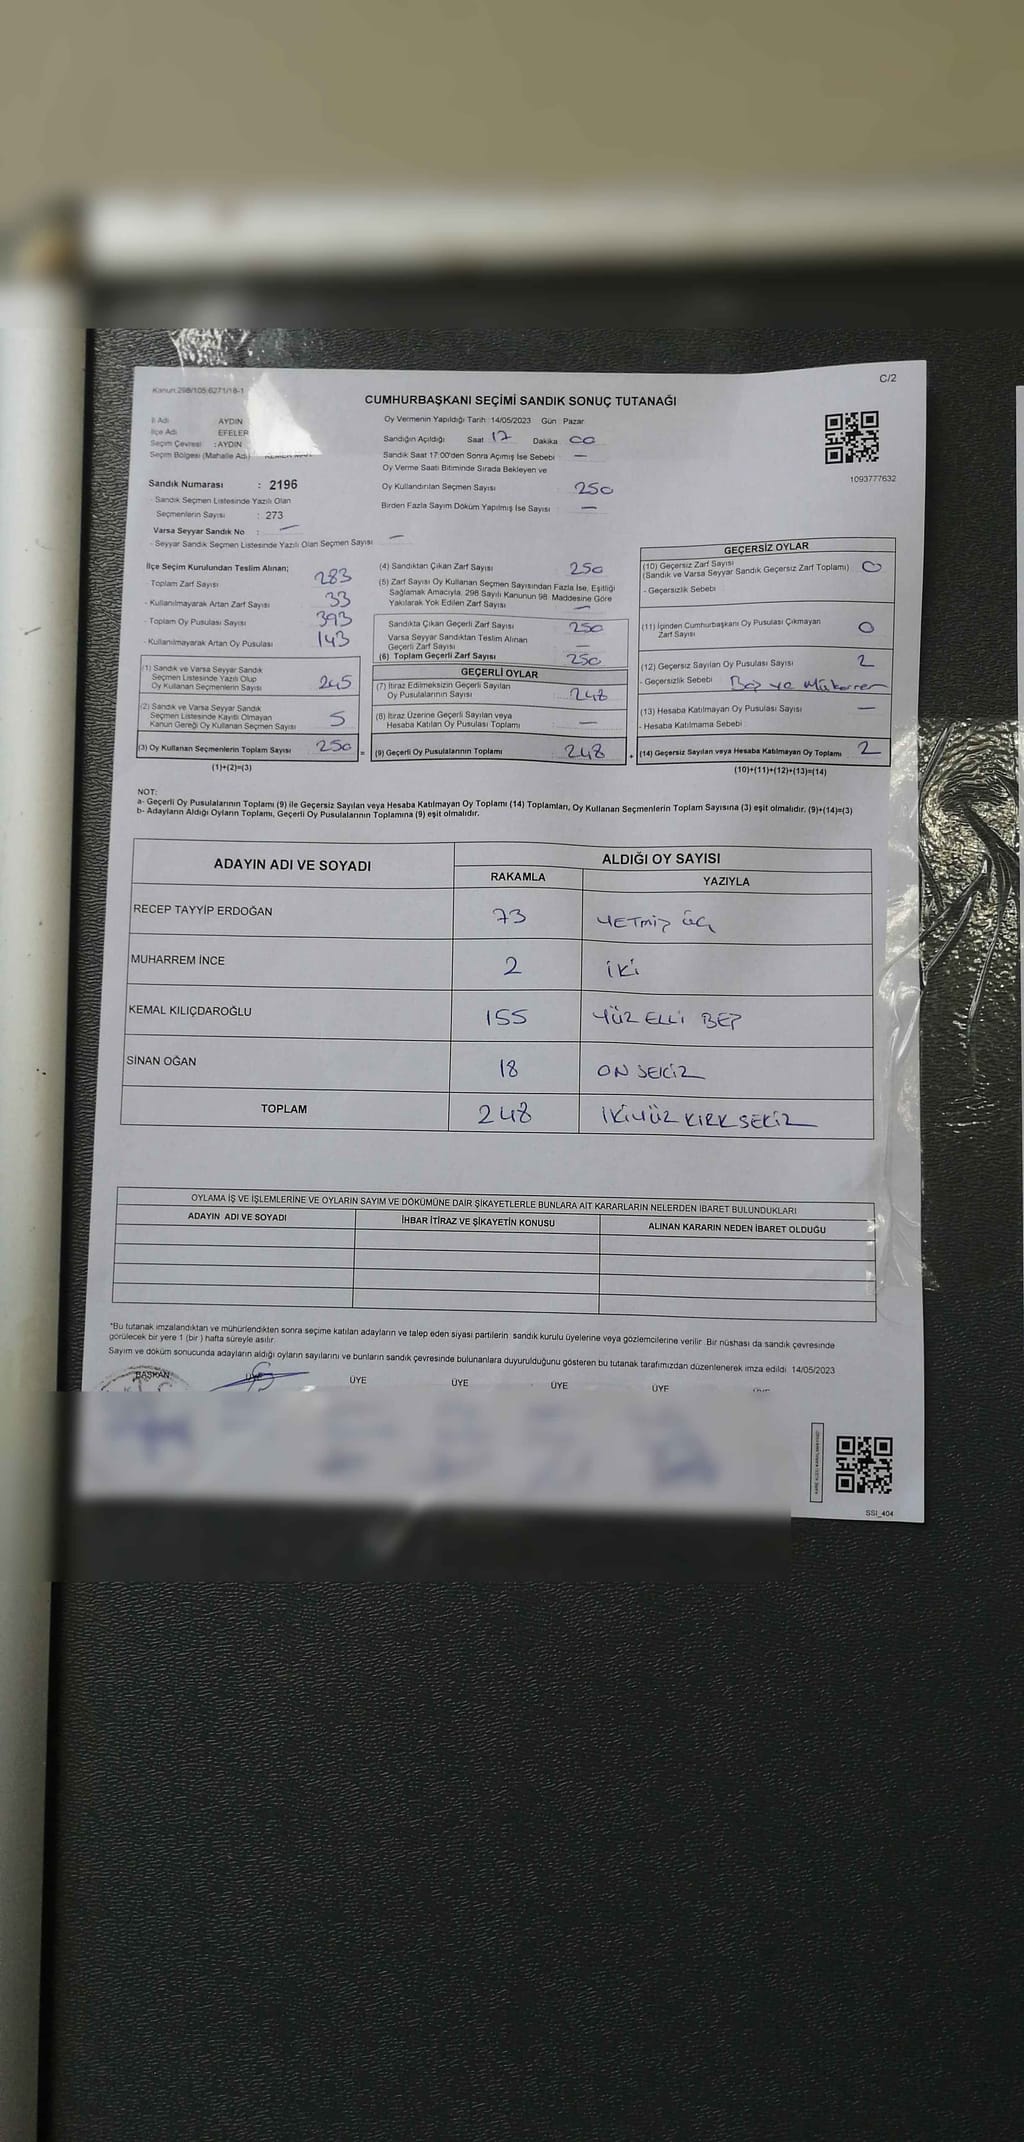 Kanun:298/105;6271/18-1
C/2
CUMHURBAŞKANI SEÇİMİ SANDIK SONUÇ TUTANAĞI
İl Adı AYDIN
İlçe Adı EFELER
Seçim Çevresi : AYDIN
Seçim Bölgesi (Mahalle Adı)
Sandık Numarası : 2196
- Sandık Seçmen Listesinde Yazılı Olan
Seçmenlerin Sayısı : 273
Varsa Seyyar Sandık No : —
- Seyyar Sandık Seçmen Listesinde Yazılı Olan Seçmen Sayısı —
Oy Vermenin Yapıldığı Tarih: 14/05/2023 Gün Pazar
Sandığın Açıldığı Saat 17 Dakika 00
Sandık Saat 17:00'den Sonra Açımış İse Sebebi —
Oy Verme Saati Bitiminde Sırada Bekleyen ve
Oy Kullandırılan Seçmen Sayısı 250
Birden Fazla Sayım Döküm Yapılmış İse Sayısı —
1093777632
İlçe Seçim Kurulundan Teslim Alınan;
- Toplam Zarf Sayısı 283
- Kullanılmayarak Artan Zarf Sayısı 33
- Toplam Oy Pusulası Sayısı 393
- Kullanılmayarak Artan Oy Pusulası 143
(1) Sandık ve Varsa Seyyar Sandık
Seçmen Listesinde Yazılı Olup
Oy Kullanan Seçmenlerin Sayısı 245
(2) Sandık ve Varsa Seyyar Sandık
Seçmen Listesinde Kayıtlı Olmayan
Kanun Gereği Oy Kullanan Seçmen Sayısı 5
(3) Oy Kullanan Seçmenlerin Toplam Sayısı 250 =
(1)+(2)=(3)
(4) Sandıktan Çıkan Zarf Sayısı 250
(5) Zarf Sayısı Oy Kullanan Seçmen Sayısından Fazla İse, Eşitliği
Sağlamak Amacıyla, 298 Sayılı Kanunun 98. Maddesine Göre
Yakılarak Yok Edilen Zarf Sayısı —
Sandıkta Çıkan Geçerli Zarf Sayısı 250
Varsa Seyyar Sandıktan Teslim Alınan
Geçerli Zarf Sayısı —
(6) Toplam Geçerli Zarf Sayısı 250
GEÇERLİ OYLAR
(7) İtiraz Edilmeksizin Geçerli Sayılan
Oy Pusulalarının Sayısı 248
(8) İtiraz Üzerine Geçerli Sayılan veya
Hesaba Katılan Oy Pusulası Toplamı —
(9) Geçerli Oy Pusulalarının Toplamı 248 +
GEÇERSİZ OYLAR
(10) Geçersiz Zarf Sayısı
(Sandık ve Varsa Seyyar Sandık Geçersiz Zarf Toplamı) 0
- Geçersizlik Sebebi
(11) İçinden Cumhurbaşkanı Oy Pusulası Çıkmayan
Zarf Sayısı 0
(12) Geçersiz Sayılan Oy Pusulası Sayısı 2
- Geçersizlik Sebebi Boş ve Mükerrer
(13) Hesaba Katılmayan Oy Pusulası Sayısı —
- Hesaba Katılmama Sebebi
(14) Geçersiz Sayılan veya Hesaba Katılmayan Oy Toplamı 2
(10)+(11)+(12)+(13)=(14)
NOT:
a- Geçerli Oy Pusulalarının Toplamı (9) ile Geçersiz Sayılan veya Hesaba Katılmayan Oy Toplamı (14) Toplamları, Oy Kullanan Seçmenlerin Toplam Sayısına (3) eşit olmalıdır. (9)+(14)=(3)
b- Adayların Aldığı Oyların Toplamı, Geçerli Oy Pusulalarının Toplamına (9) eşit olmalıdır.
ADAYIN ADI VE SOYADI ALDIĞI OY SAYISI
RAKAMLA YAZIYLA
RECEP TAYYİP ERDOĞAN 73 YETMİŞ ÜÇ
MUHARREM İNCE 2 İKİ
KEMAL KILIÇDAROĞLU 155 YÜZ ELLİ BEŞ
SİNAN OĞAN 18 ON SEKİZ
TOPLAM 248 İKİYÜZ KIRK SEKİZ
OYLAMA İŞ VE İŞLEMLERİNE VE OYLARIN SAYIM VE DÖKÜMÜNE DAİR ŞİKAYETLERLE BUNLARA AİT KARARLARIN NELERDEN İBARET BULUNDUKLARI
ADAYIN ADI VE SOYADI İHBAR İTİRAZ VE ŞİKAYETİN KONUSU ALINAN KARARIN NEDEN İBARET OLDUĞU
*Bu tutanak imzalandıktan ve mühürlendikten sonra seçime katılan adayların ve talep eden siyasi partilerin sandık kurulu üyelerine veya gözlemcilerine verilir. Bir nüshası da sandık çevresinde
görülecek bir yere 1 (bir) hafta süreyle asılır.
Sayım ve döküm sonucunda adayların aldığı oyların sayılarını ve bunların sandık çevresinde bulunanlara duyurulduğunu gösteren bu tutanak tarafımızdan düzenlenerek imza edildi. 14/05/2023
BAŞKAN ÜYE ÜYE ÜYE ÜYE
SSI_404